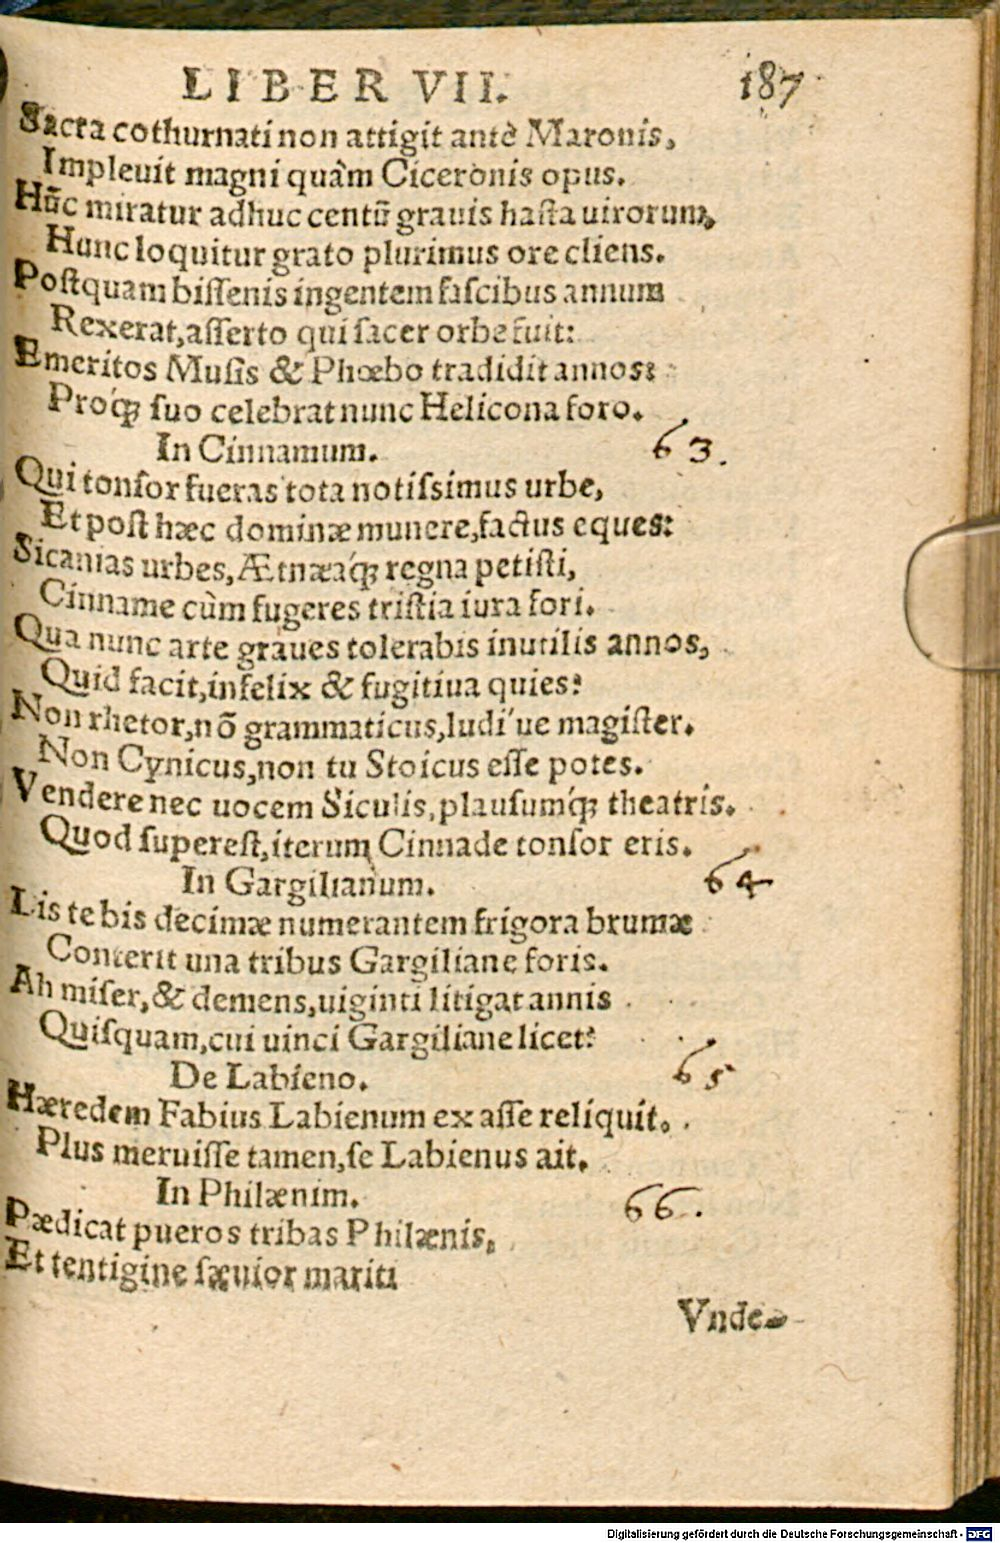 LIBER VII. 187
Sacra cothurnati non attigit antè Maronis,
Impleuit magni quàm Ciceronis opus.
Hūc miratur adhuc centū grauis hasta uirorum,
Hunc loquitur grato plurimus ore cliens.
Postquam bissenis ingentem fascibus annum
Rexerat, asserto qui sacer orbe fuit:
Emeritos Musis & Phœbo tradidit annos:
Proq́; suo celebrat nunc Helicona foro.
In Cinnamum. 63.
Qui tonsor fueras tota notissimus urbe,
Et post hæc dominæ munere, factus eques:
Sicanias urbes, Ætnæaq́; regna petisti,
Cinname cùm fugeres tristia iura fori.
Qua nunc arte graues tolerabis inutilis annos,
Quid facit, infelix & fugitiua quies?
Non rhetor, nō grammaticus, ludi'ue magister.
Non Cynicus, non tu Stoicus esse potes.
Vendere nec uocem Siculis, plausumq́; theatris.
Quod superest, iterum Cinnade tonsor eris.
In Gargilianum. 64
Lis te bis decimæ numerantem frigora brumæ
Conterit una tribus Gargiliane foris.
Ah miser, & demens, uiginti litigat annis
Quisquam, cui uinci Gargiliane licet?
De Labieno. 65
Hæredem Fabius Labienum ex asse reliquit.
Plus meruisse tamen, se Labienus ait.
In Philænim. 66.
Pædicat pueros tribas Philænis,
Et tentigine sæuior mariti
Vnde
Digitalisierung gefördert durch die Deutsche Forschungsgemeinschaft - DFG